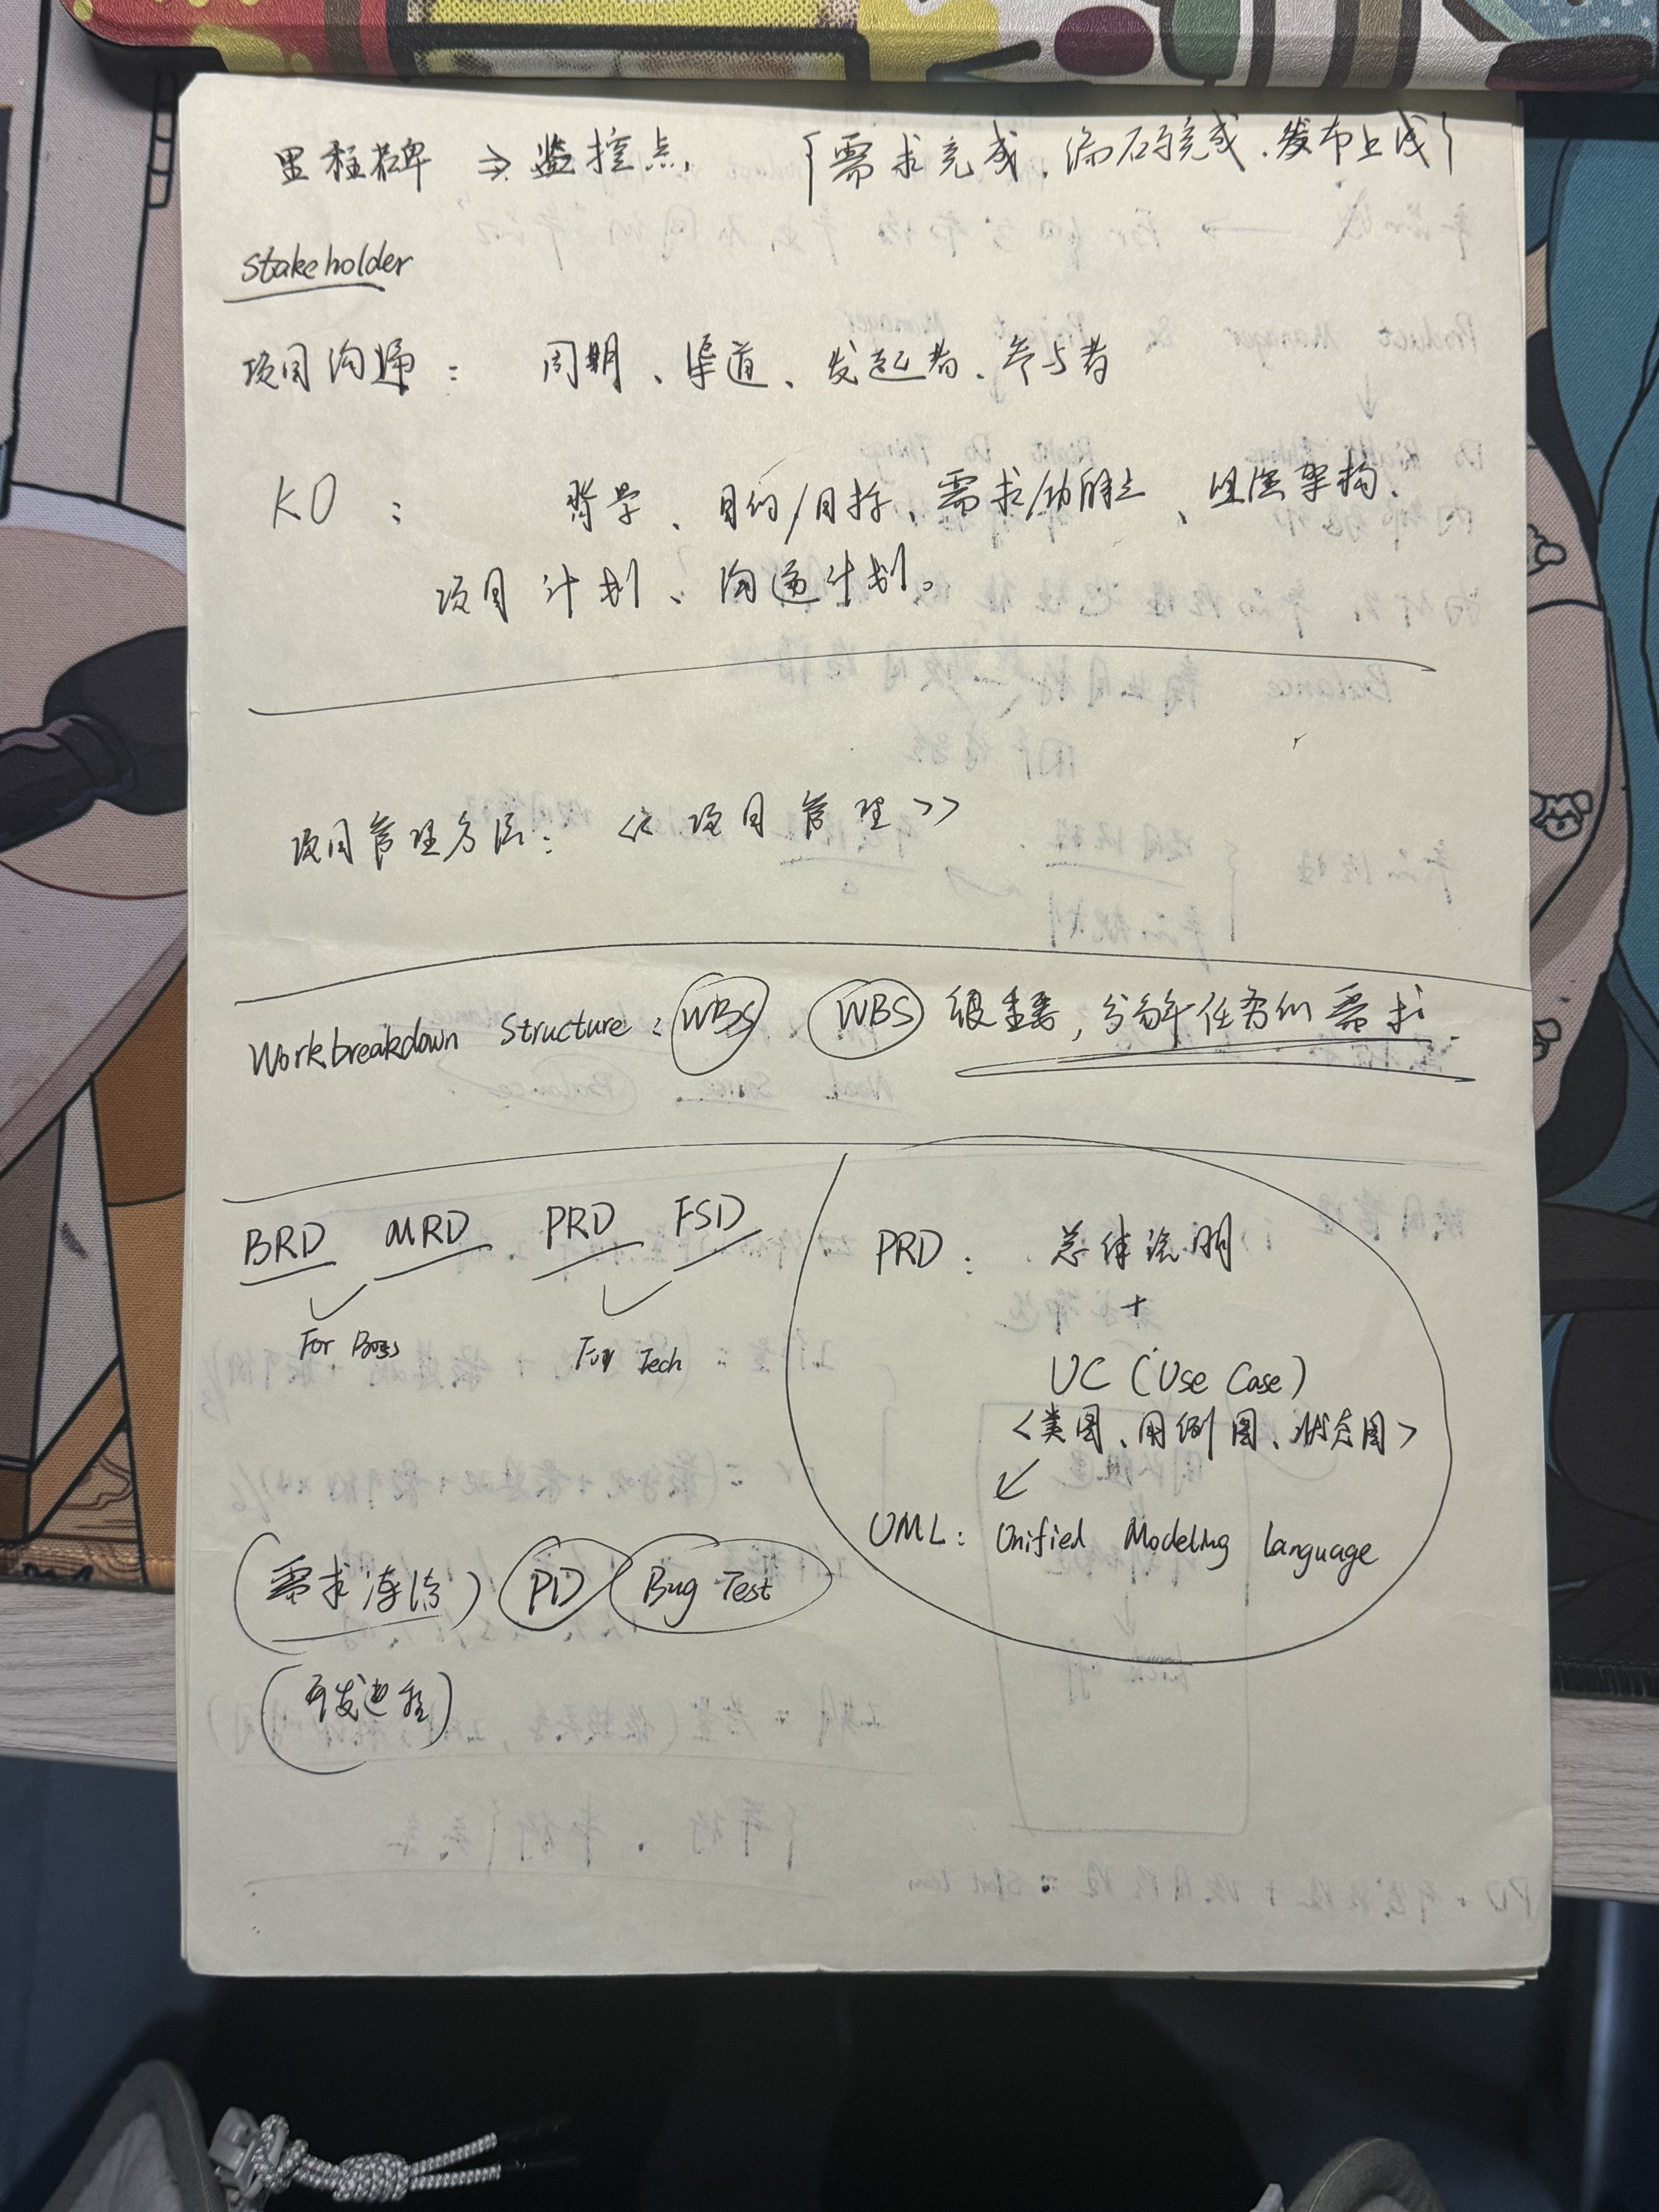 里程碑 => 监控点, {需求完成、编码完成、发布上线}
Stakeholder
项目沟通: 周期、渠道、发起者、参与者
KO: 背景、目的/目标、需求/功能点、组织架构、
项目计划、沟通计划。
项目管理方法: <<项目管理>>
Workbreakdown Structure: WBS WBS 很重要,分解任务的需求.
BRD MRD PRD FSD
For Boss For Tech
PRD: 总体说明
+
UC (Use Case)
<类图、用例图、状态图>
UML: Unified Modeling Language
(需求冻结) PD Bug Test
(开发过程)